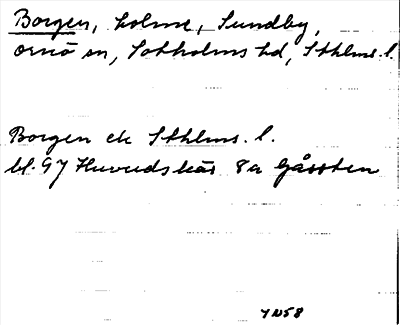 Borgen, holme, Sundby,
Ornö sn, Sotholms hd, Sthlms. l.
Borgen ek Sthlms. l.
bl. 97 Huvudskär 8a Gåssten
YN58